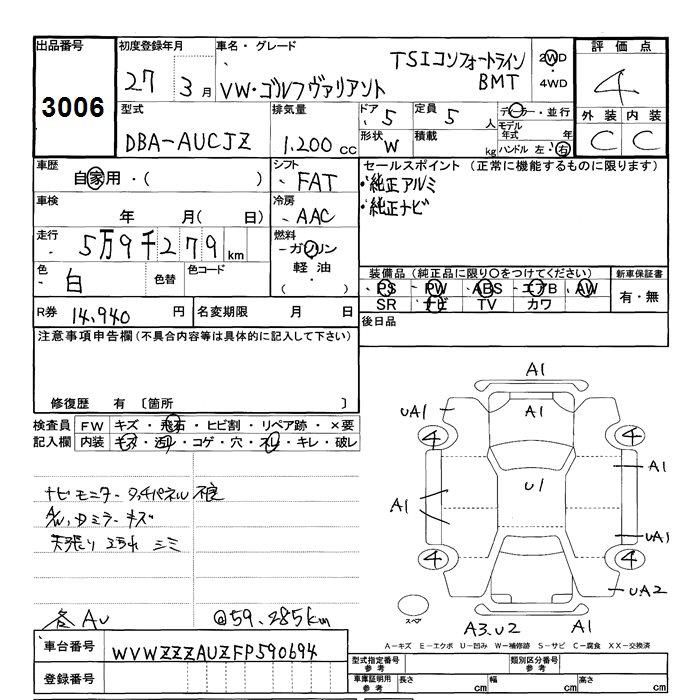 出品番号 初度登録年月 車名・グレード 評価点
3006 27年 3月 VW・ゴルフヴァリアント TSIコンフォートライン BMT 2WD・4WD 4
型式 排気量 ドア 5 定員 5人 ディーラー・並行 外装 内装
DBA-AUCJZ 1.200cc 形状 W 積載 kg モデル年式 年 ハンドル 左・右 C C
車歴 自家用・( ) シフト ・FAT セールスポイント (正常に機能するものに限ります)
・純正アルミ
・純正ナビ
車検 年 月( 日) 冷房 ・AAC
走行 5万9千279km 燃料 ・ガソリン 軽油 ・( )
色 白 色替 色コード
装備品 (純正品に限り○をつけてください) 新車保証書
・PS ・PW ・ABS ・エアB ・AW 有・無
SR ナビ TV カワ
R券 14,940円 名変期限 月 日 後日品
注意事項申告欄 (不具合内容等は具体的に記入して下さい)
修復歴 有 〔箇所 〕
検査員 記入欄 FW キズ・飛石・ヒビ割・リペア跡・×要
内装 キズ・汚レ・コゲ・穴・スレ・キレ・破レ
ナビモニター タッチパネル不良
A/W,Dミラーキズ
天張り ヨゴレ シミ
各AU @59.285km
車台番号 WVWZZZAUZFP590694
登録番号
A1
UA1 A1
4 4
A1
A1 U1
UA1
4 4
UA2
スペア A3.U2 A1
A-キズ E-エクボ U-凹み W-補修跡 S-サビ C-腐食 XX-交換済
型式指定番号 参考 類別区分番号 参考
車庫証明用 参考 長さ cm 幅 cm 高さ cm